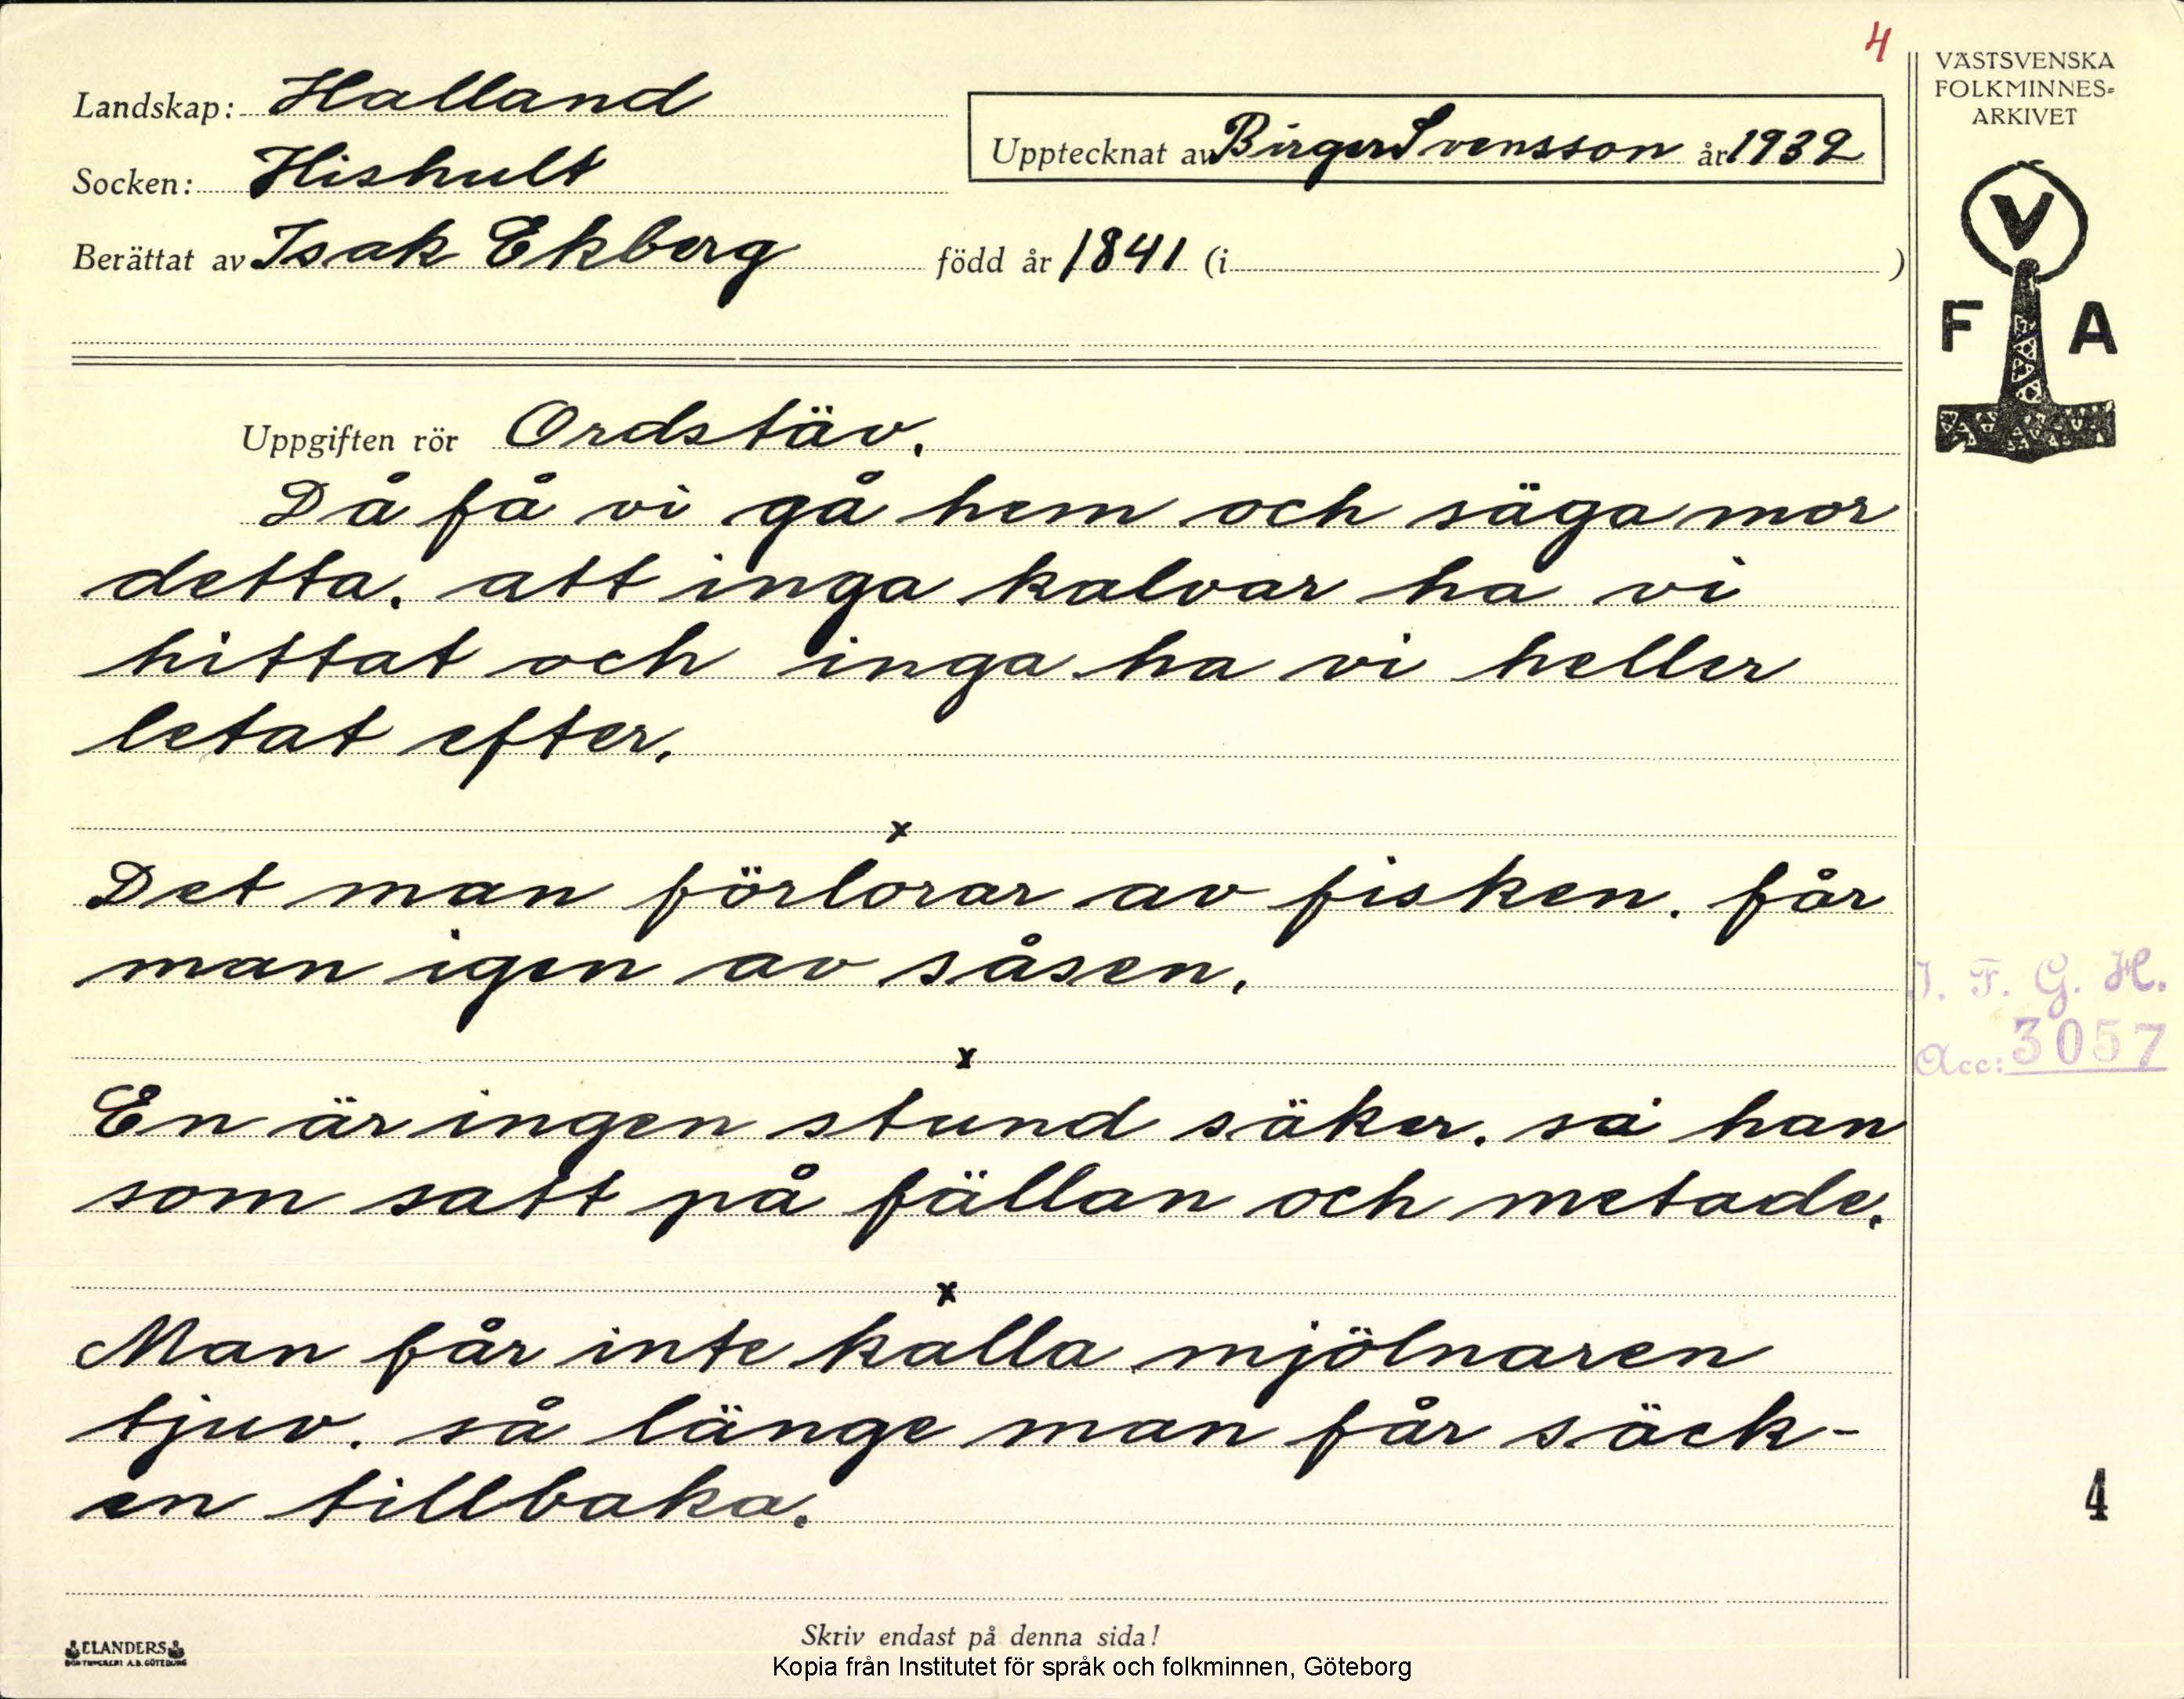 4
VÄSTSVENSKA
FOLKMINNES-
ARKIVET
Landskap: Halland
Upptecknat av Birger Svensson år 1932
Socken: Hishult
Berättat av Isak Ekberg född år 1841 (i )
V
F A
Uppgiften rör Ordstäv.
Då få vi gå hem och säga mor
detta. att inga kalvar ha vi
hittat och inga ha vi heller
letat efter.
x
Det man förlorar av fisken. får
man igen av såsen.
I. F. G. H.
Acc: 3057
x
En är ingen stund säker. sa han
som satt på fällan och metade.
x
Man får inte kalla mjölnaren
tjuv. så länge man får säck-
en tillbaka.
4
Skriv endast på denna sida!
ELANDERS
BOKTRYCKERI A.B. GÖTEBORG
Kopia från Institutet för språk och folkminnen, Göteborg